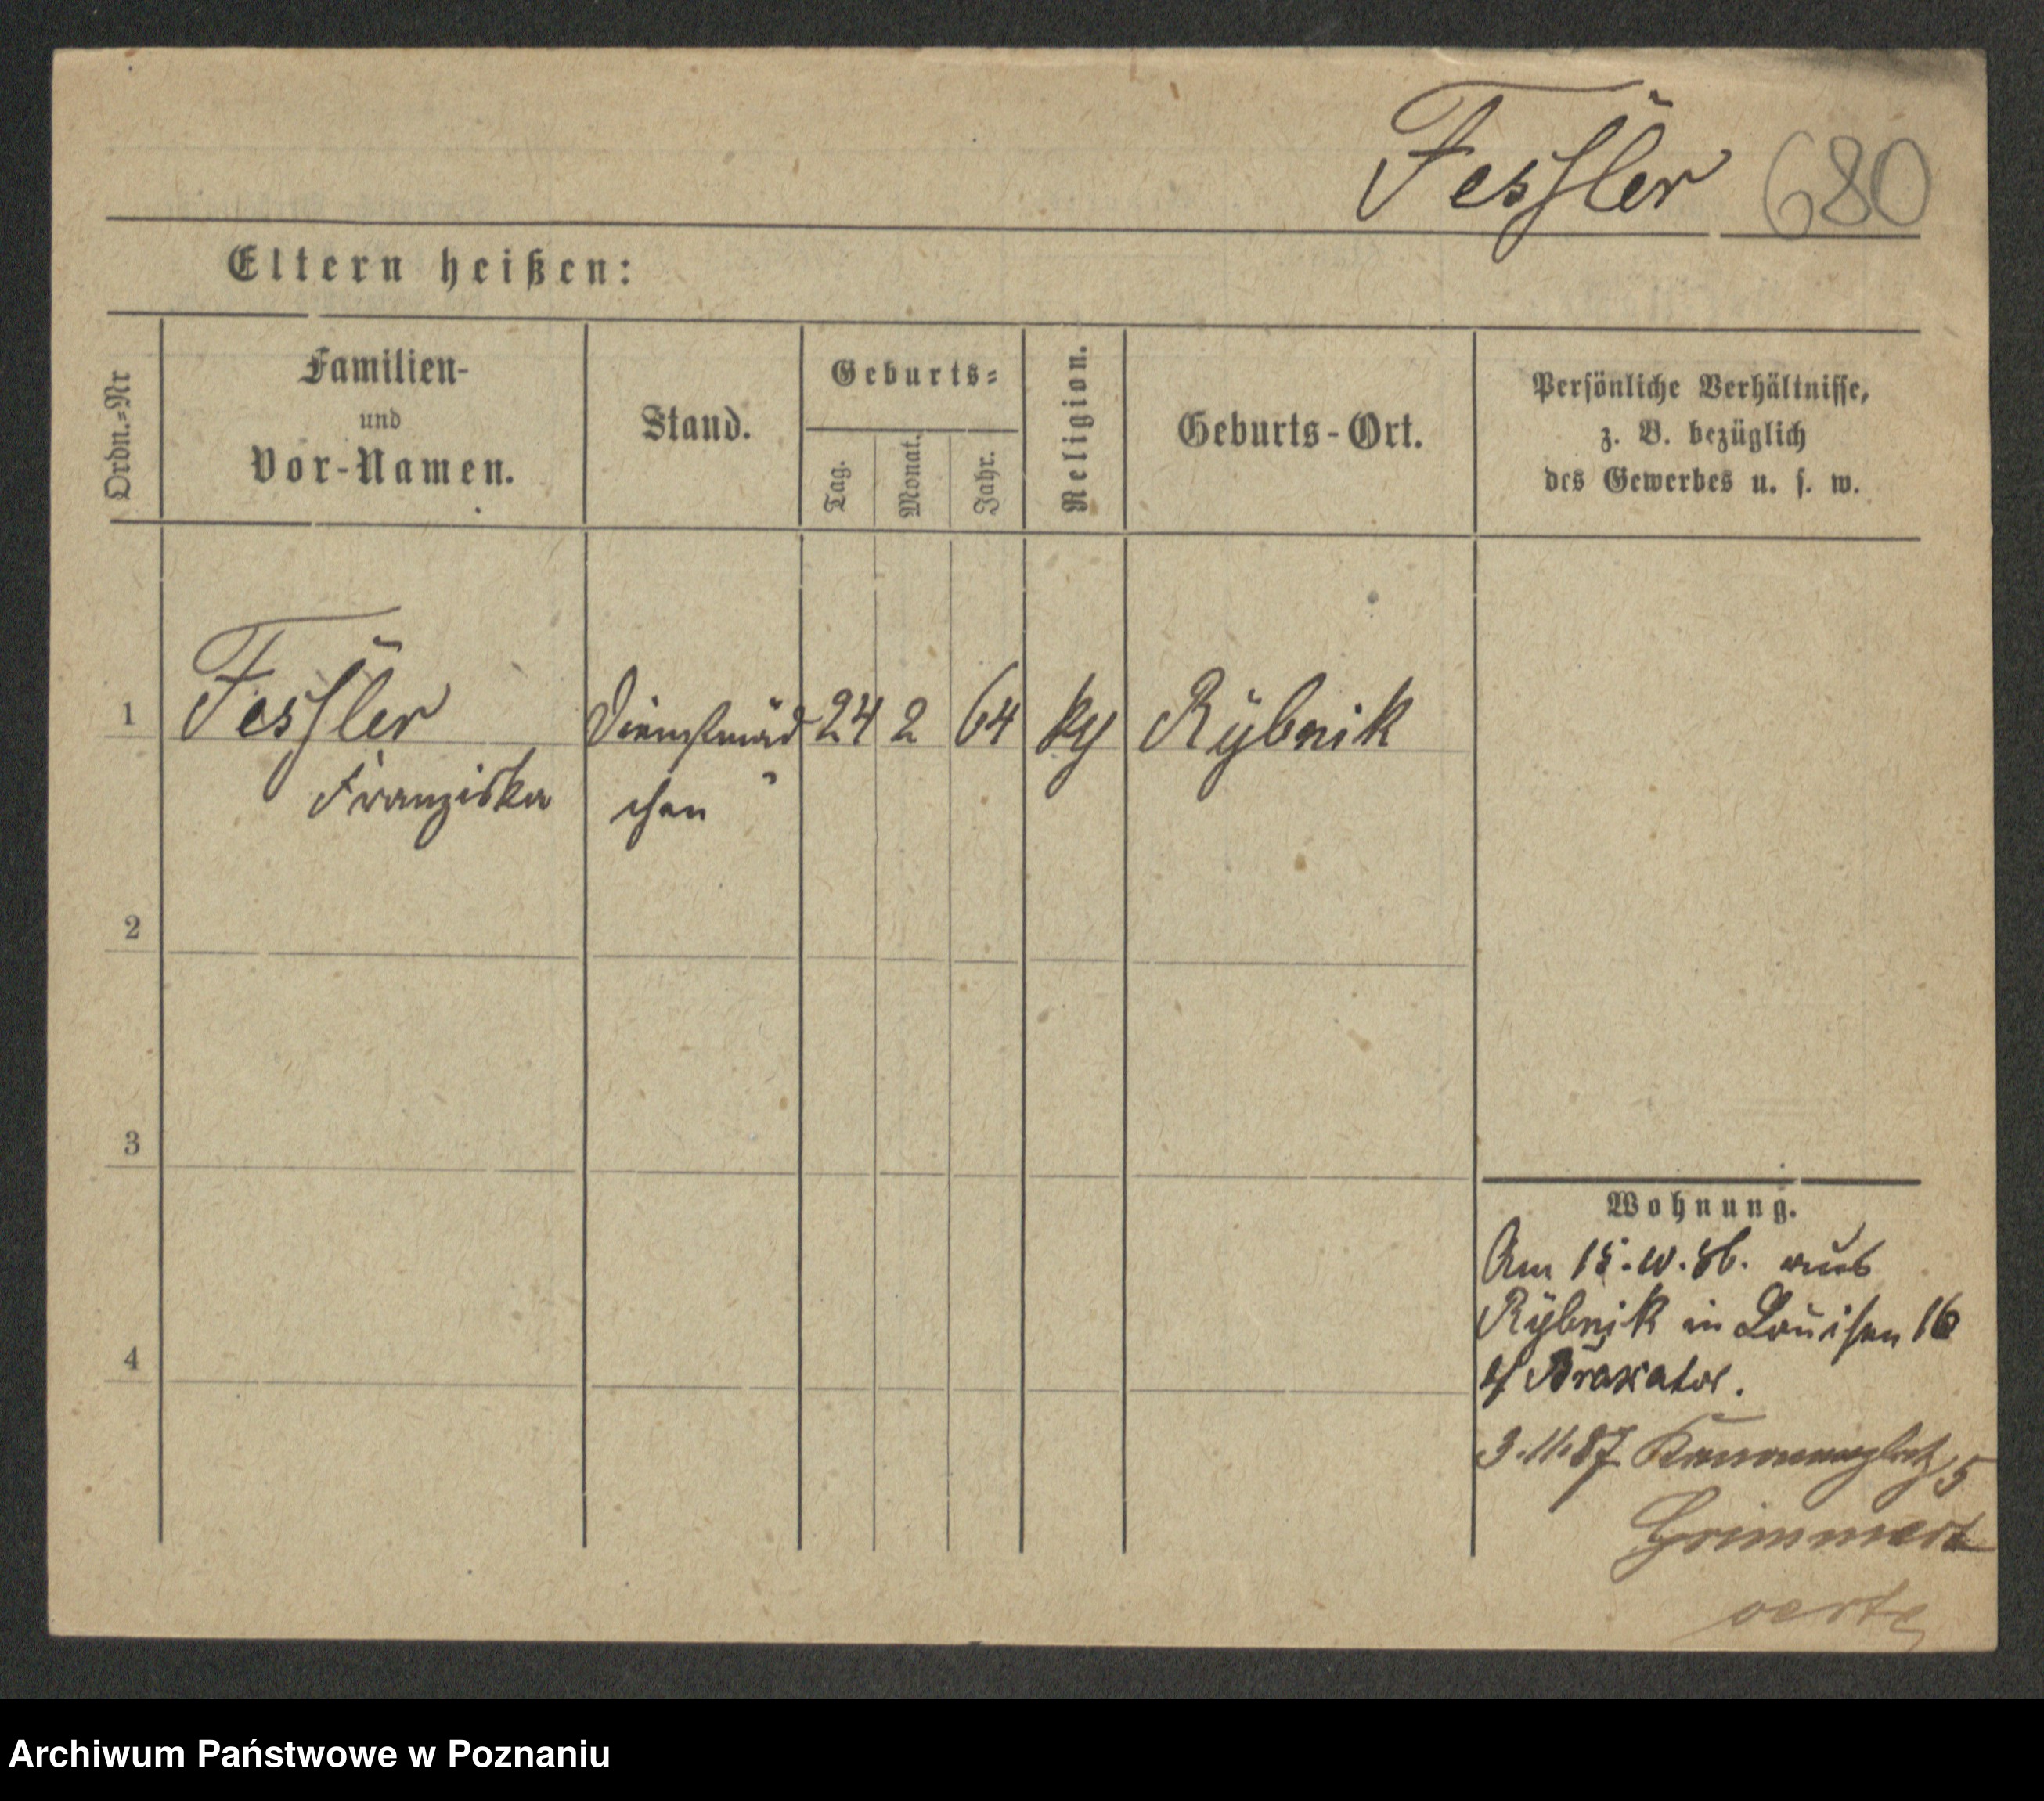 Fessler 680
Eltern heißen:
Ordn.-Nr
Familien-
und
Vor-Namen.
Stand.
Geburts-
Tag.
Monat.
Jahr.
Religion.
Geburts-Ort.
Persönliche Verhältnisse,
z. B. bezüglich
des Gewerbes u. s. w.
1 Fessler Dienstmäd 24 2 64 Rybnik
Franziska chen
2
3
4
Wohnung.
Am 15. 86. aus
Rybnik in Louisen 16
b/ Braxator.
3.11.87 Kanonenplatz 5
Grimmert
Archiwum Państwowe w Poznaniu